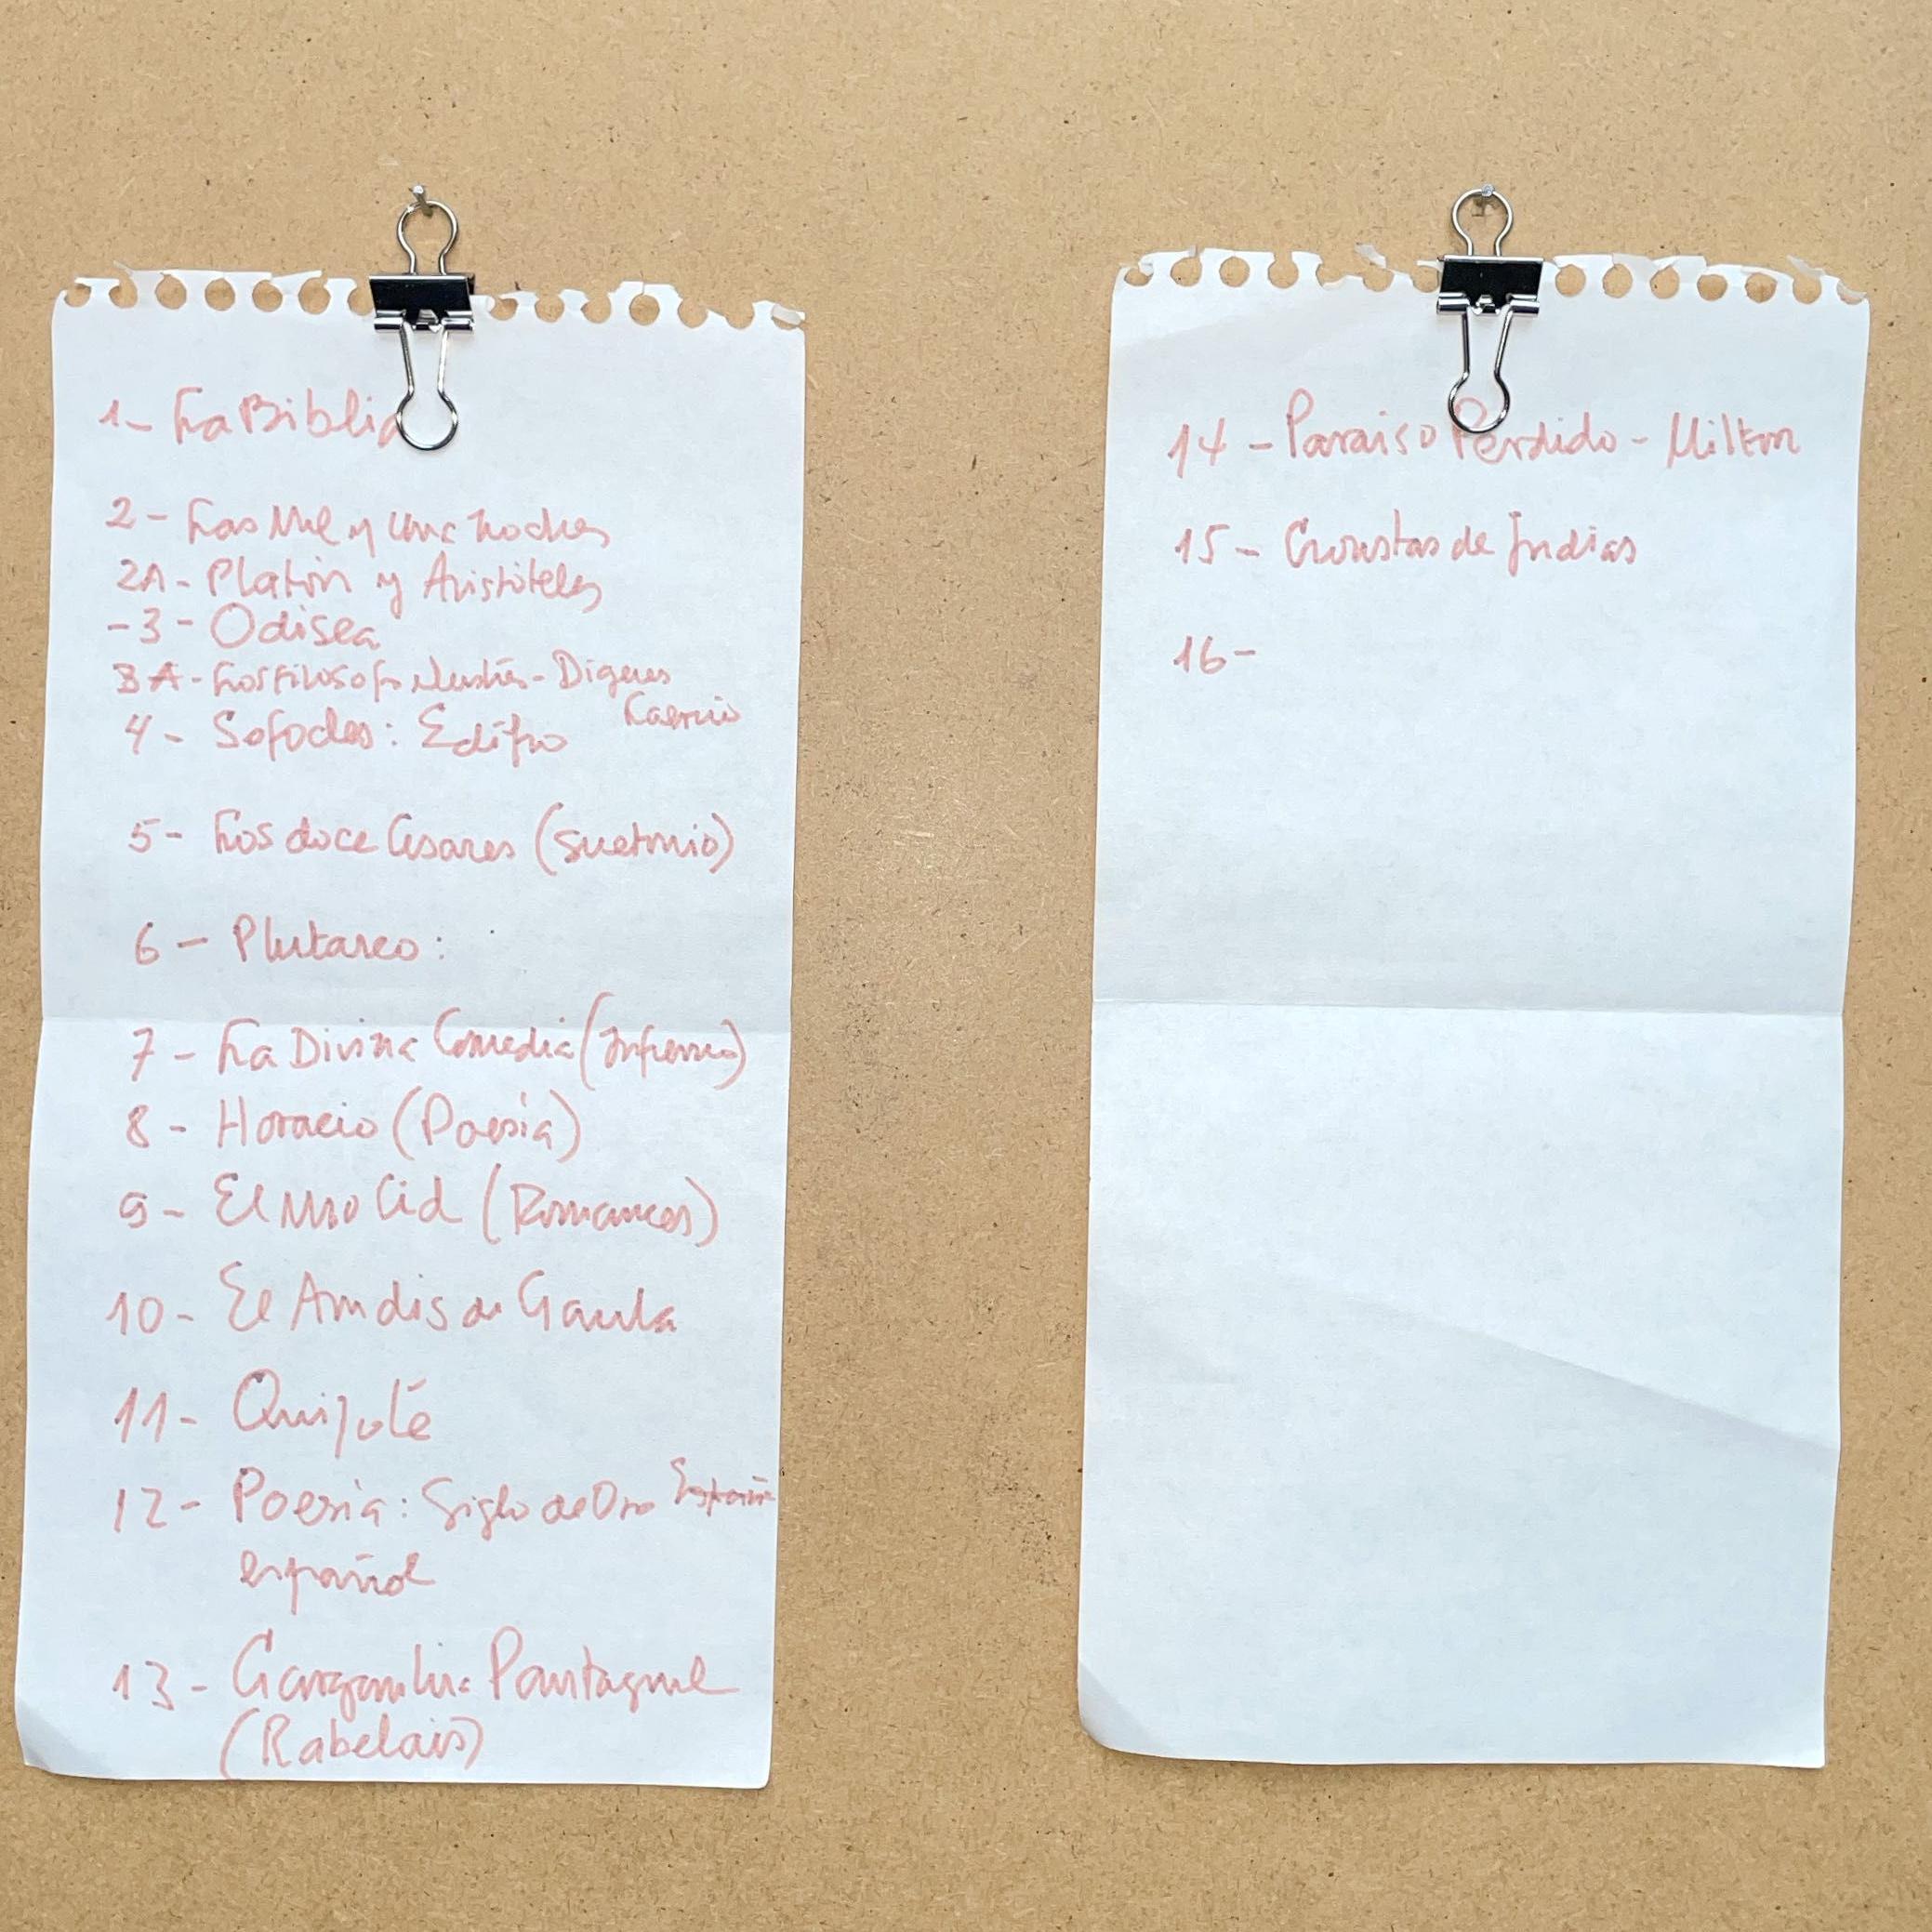 1- La Biblia
2- Las Mil y Una Noches
2A- Platón y Aristóteles
-3- Odisea
3A- Los Filosofos Ilustres - Digenes
Laercio
4- Sofocles: Edipo
5- Los doce Cesares (Suetonio)
6- Plutarco:
7- La Divina Comedia (Infierno)
8- Horacio (Poesía)
9- El Mio Cid (Romances)
10- El Amdis de Gaula
11- Quijote
12- Poesía: Siglo de Oro España
español
13- Gargantua Pantagruel
(Rabelais)
14- Paraiso Perdido - Milton
15- Cronistas de Indias
16-